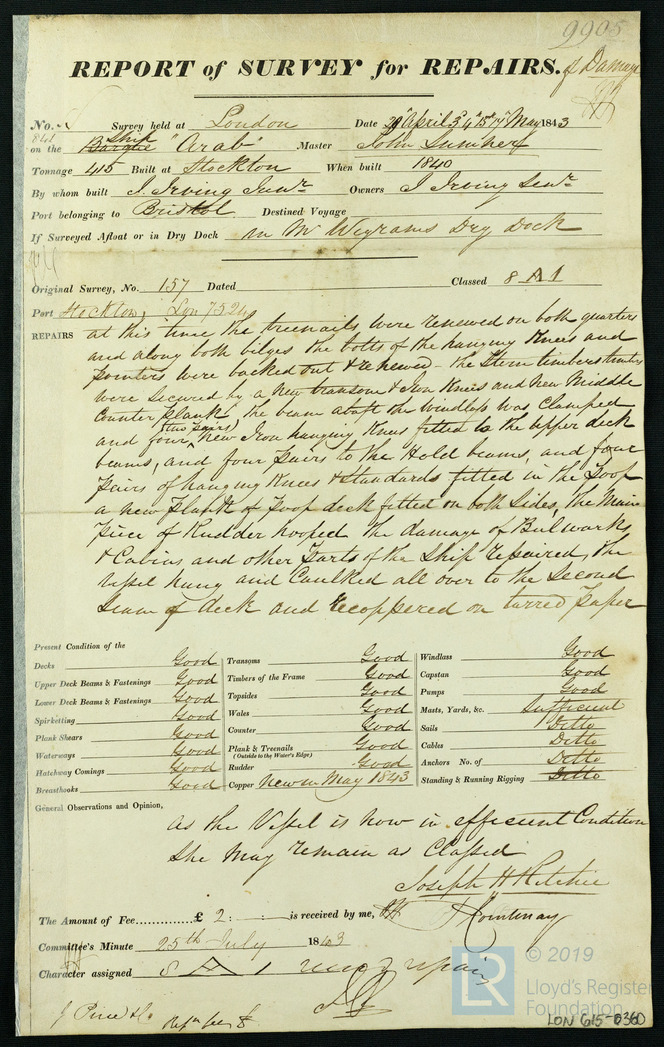 9905
REPORT of SURVEY for REPAIRS. of Damage
No. Survey held at London Date 29 April 3d 4th 5th 7th May 1843
841
on the Barque Ship "Arab" Master John Sumner
Tonnage 415 Built at Stockton When built 1840
By whom built J. Irving Junr Owners J Irving Senr
Port belonging to Bristol Destined Voyage
If Surveyed Afloat or in Dry Dock in Mr Wigrams Dry Dock
Original Survey, No. 157 Dated Classed 8 A 1
Port Stockton; Lon 7524
REPAIRS at this time the treenails were renewed on both quarters
and along both bilges the bolts of the hanging Knees and
pointers were backed out & renewed - The Stern timbers
were Secured by a New transom & Iron Knees and new Middle
Counter plank the beam abaft the Windlass was Clamped
and four (two pairs) New Iron hanging Knees fitted to the upper deck
beams, and four pairs to the Hold beams, and four
pairs of hanging Knees & Standards fitted in the Poop
a new plank of Poop deck fitted on both Sides, The Main
piece of Rudder hooped The damage of Bulwarks
& Cabins and other parts of the Ship repaired, the
Vessel hung and Caulked all over to the Second
Seam of deck and recoppered on tarred paper
Present Condition of the
Decks Good Transoms Good Windlass Good
Upper Deck Beams & Fastenings Good Timbers of the Frame Good Capstan Good
Lower Deck Beams & Fastenings Good Topsides Good Pumps Good
Spirketting Good Wales Good Masts, Yards, &c. Sufficient
Plank Shears Good Counter Good Sails Ditto
Waterways Good Plank & Treenails (Outside to the Water's Edge) Good Cables Ditto
Hatchway Comings Good Rudder Good Anchors No. of Ditto
Breasthooks Good Copper New in May 1843 Standing & Running Rigging Ditto
General Observations and Opinion,
As the Vessel is now in efficient Condition
She May remain as Classed
Joseph H Ritchie
The Amount of Fee £ 2 : - : - is received by me, J Courtenay
Committee's Minute 25th July 1843
Character assigned 8 A 1
© 2019
LR
Lloyd's Register
Foundation
LON 615-0360